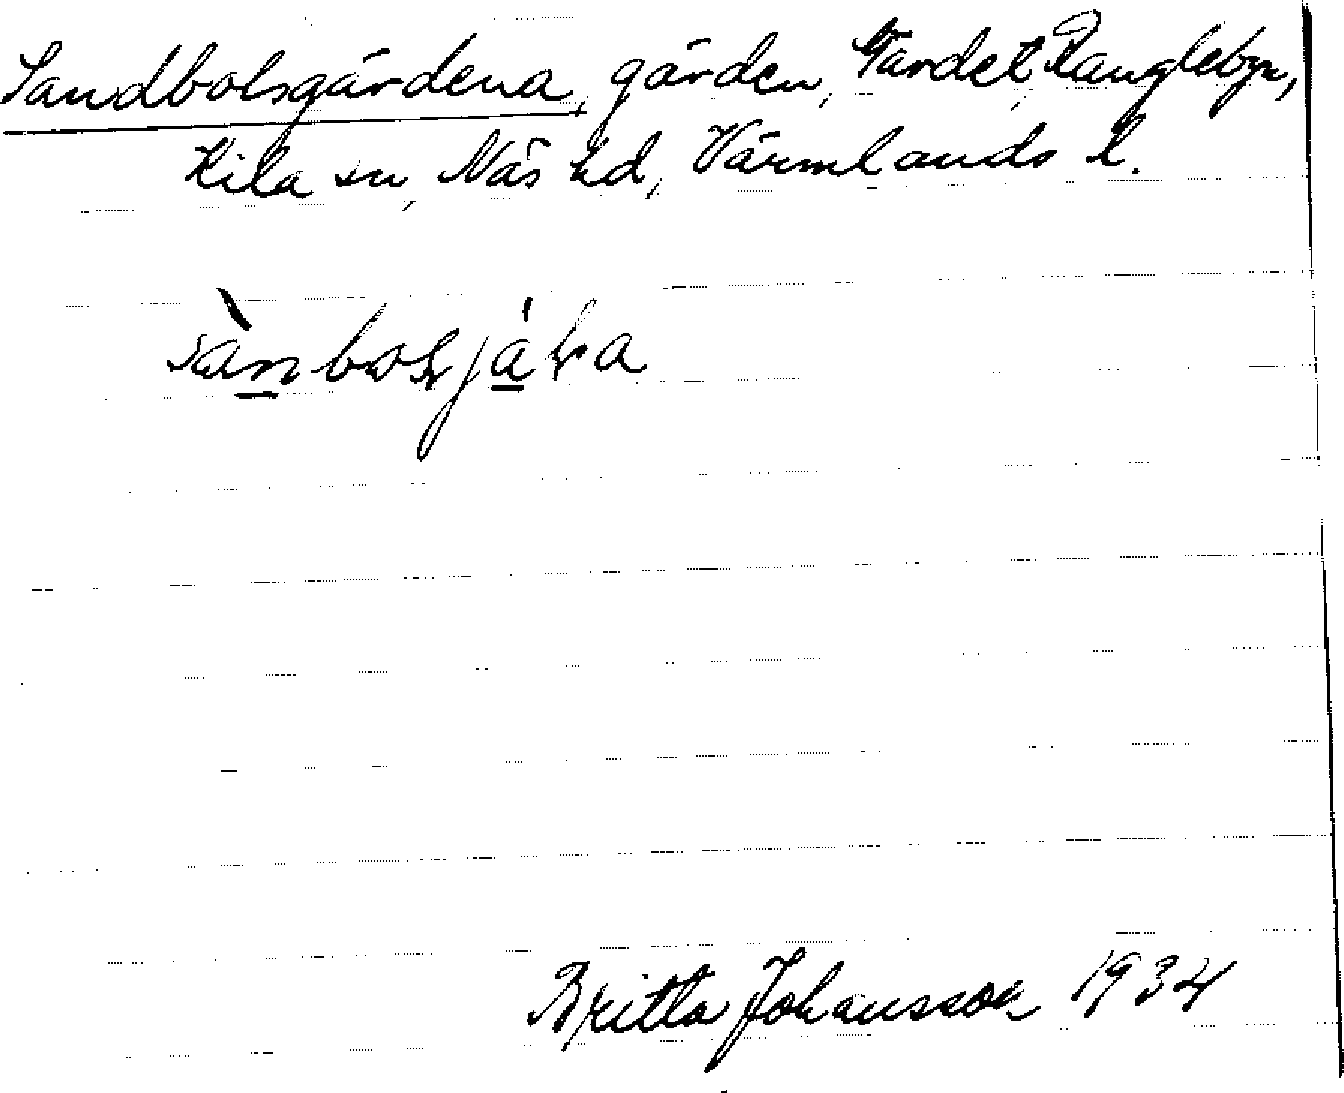 Sandbolsgårdena, gården, Tardet, Ranglebyn,
Kila sn, Näs hd, Värmlands l.
Britta Johansson 1934